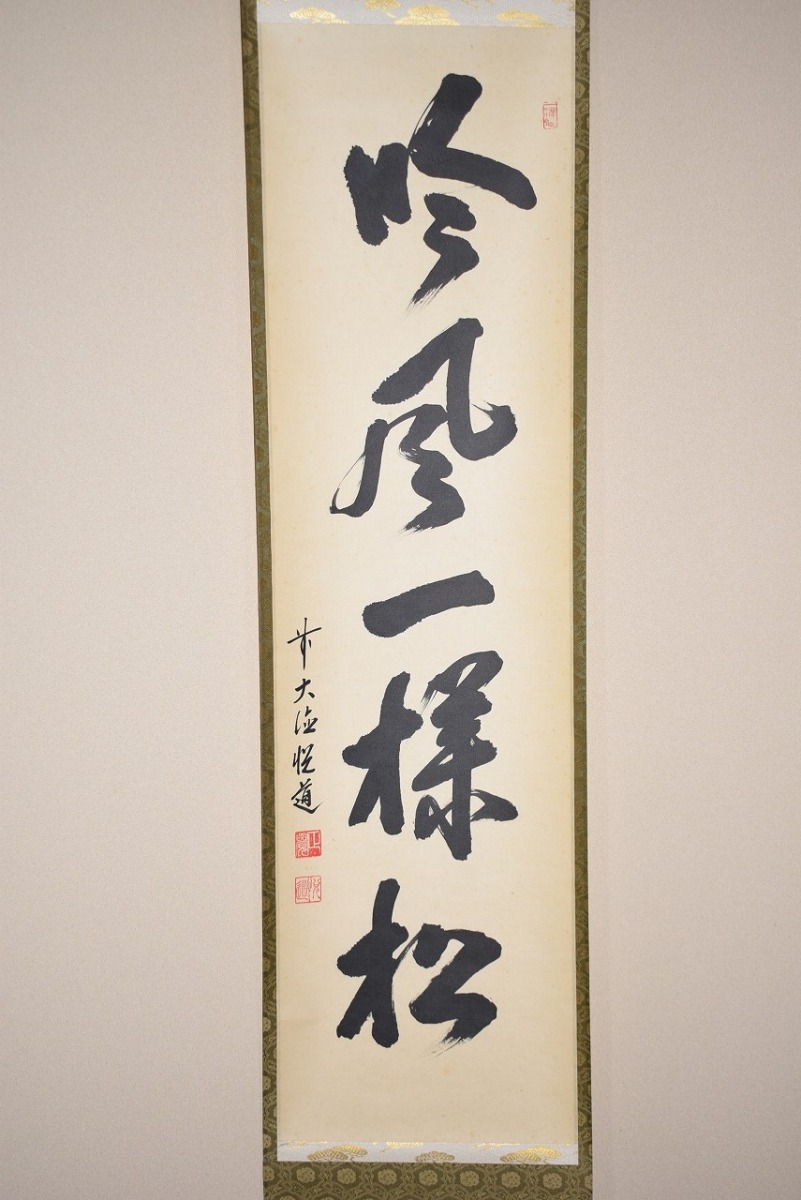 吟風一様松
前大徳悦道